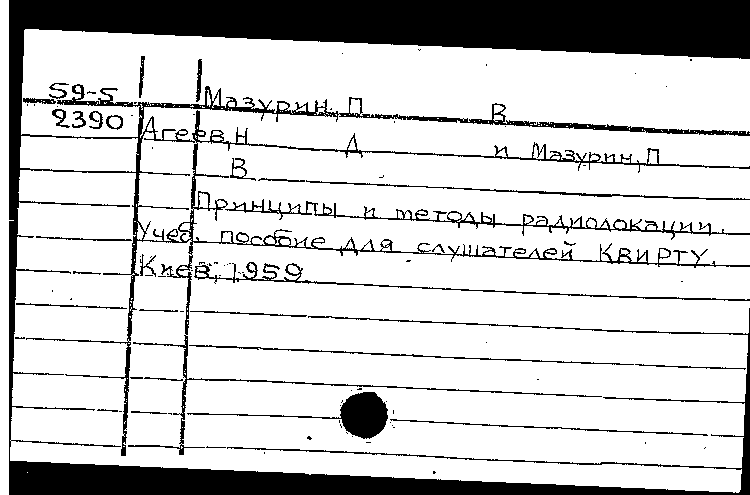 59-5 Мазурин, П В
2390 Агеев, Н Д и Мазурин, П
В
Принципы и методы радиолокации.
Учеб. пособие для слушателей КВИРТУ.
Киев, 1959